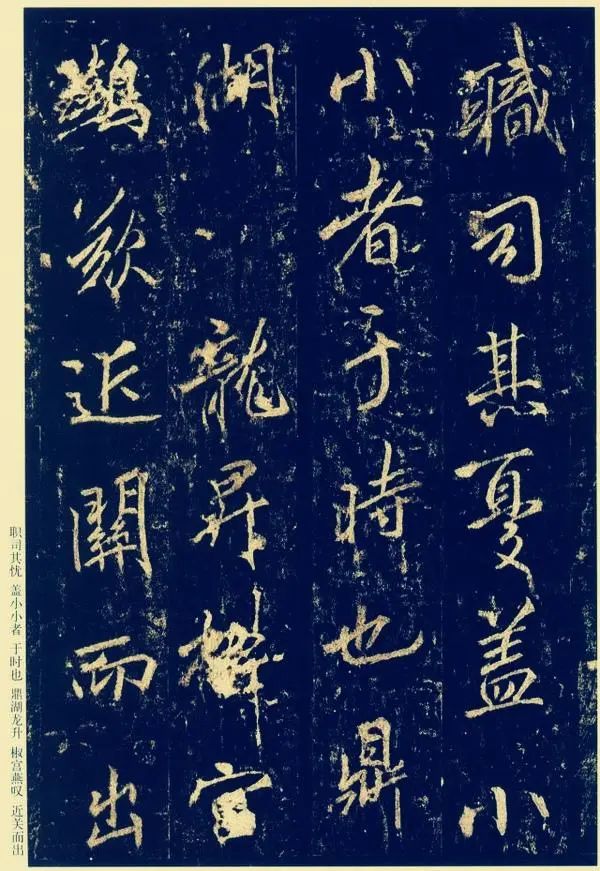 職司其憂蓋小
小者于時也鼎
湖龍昇椒宮
鷰歎近關而出
职司其忧 盖小小者 于时也 鼎湖龙升 椒宫燕叹 近关而出